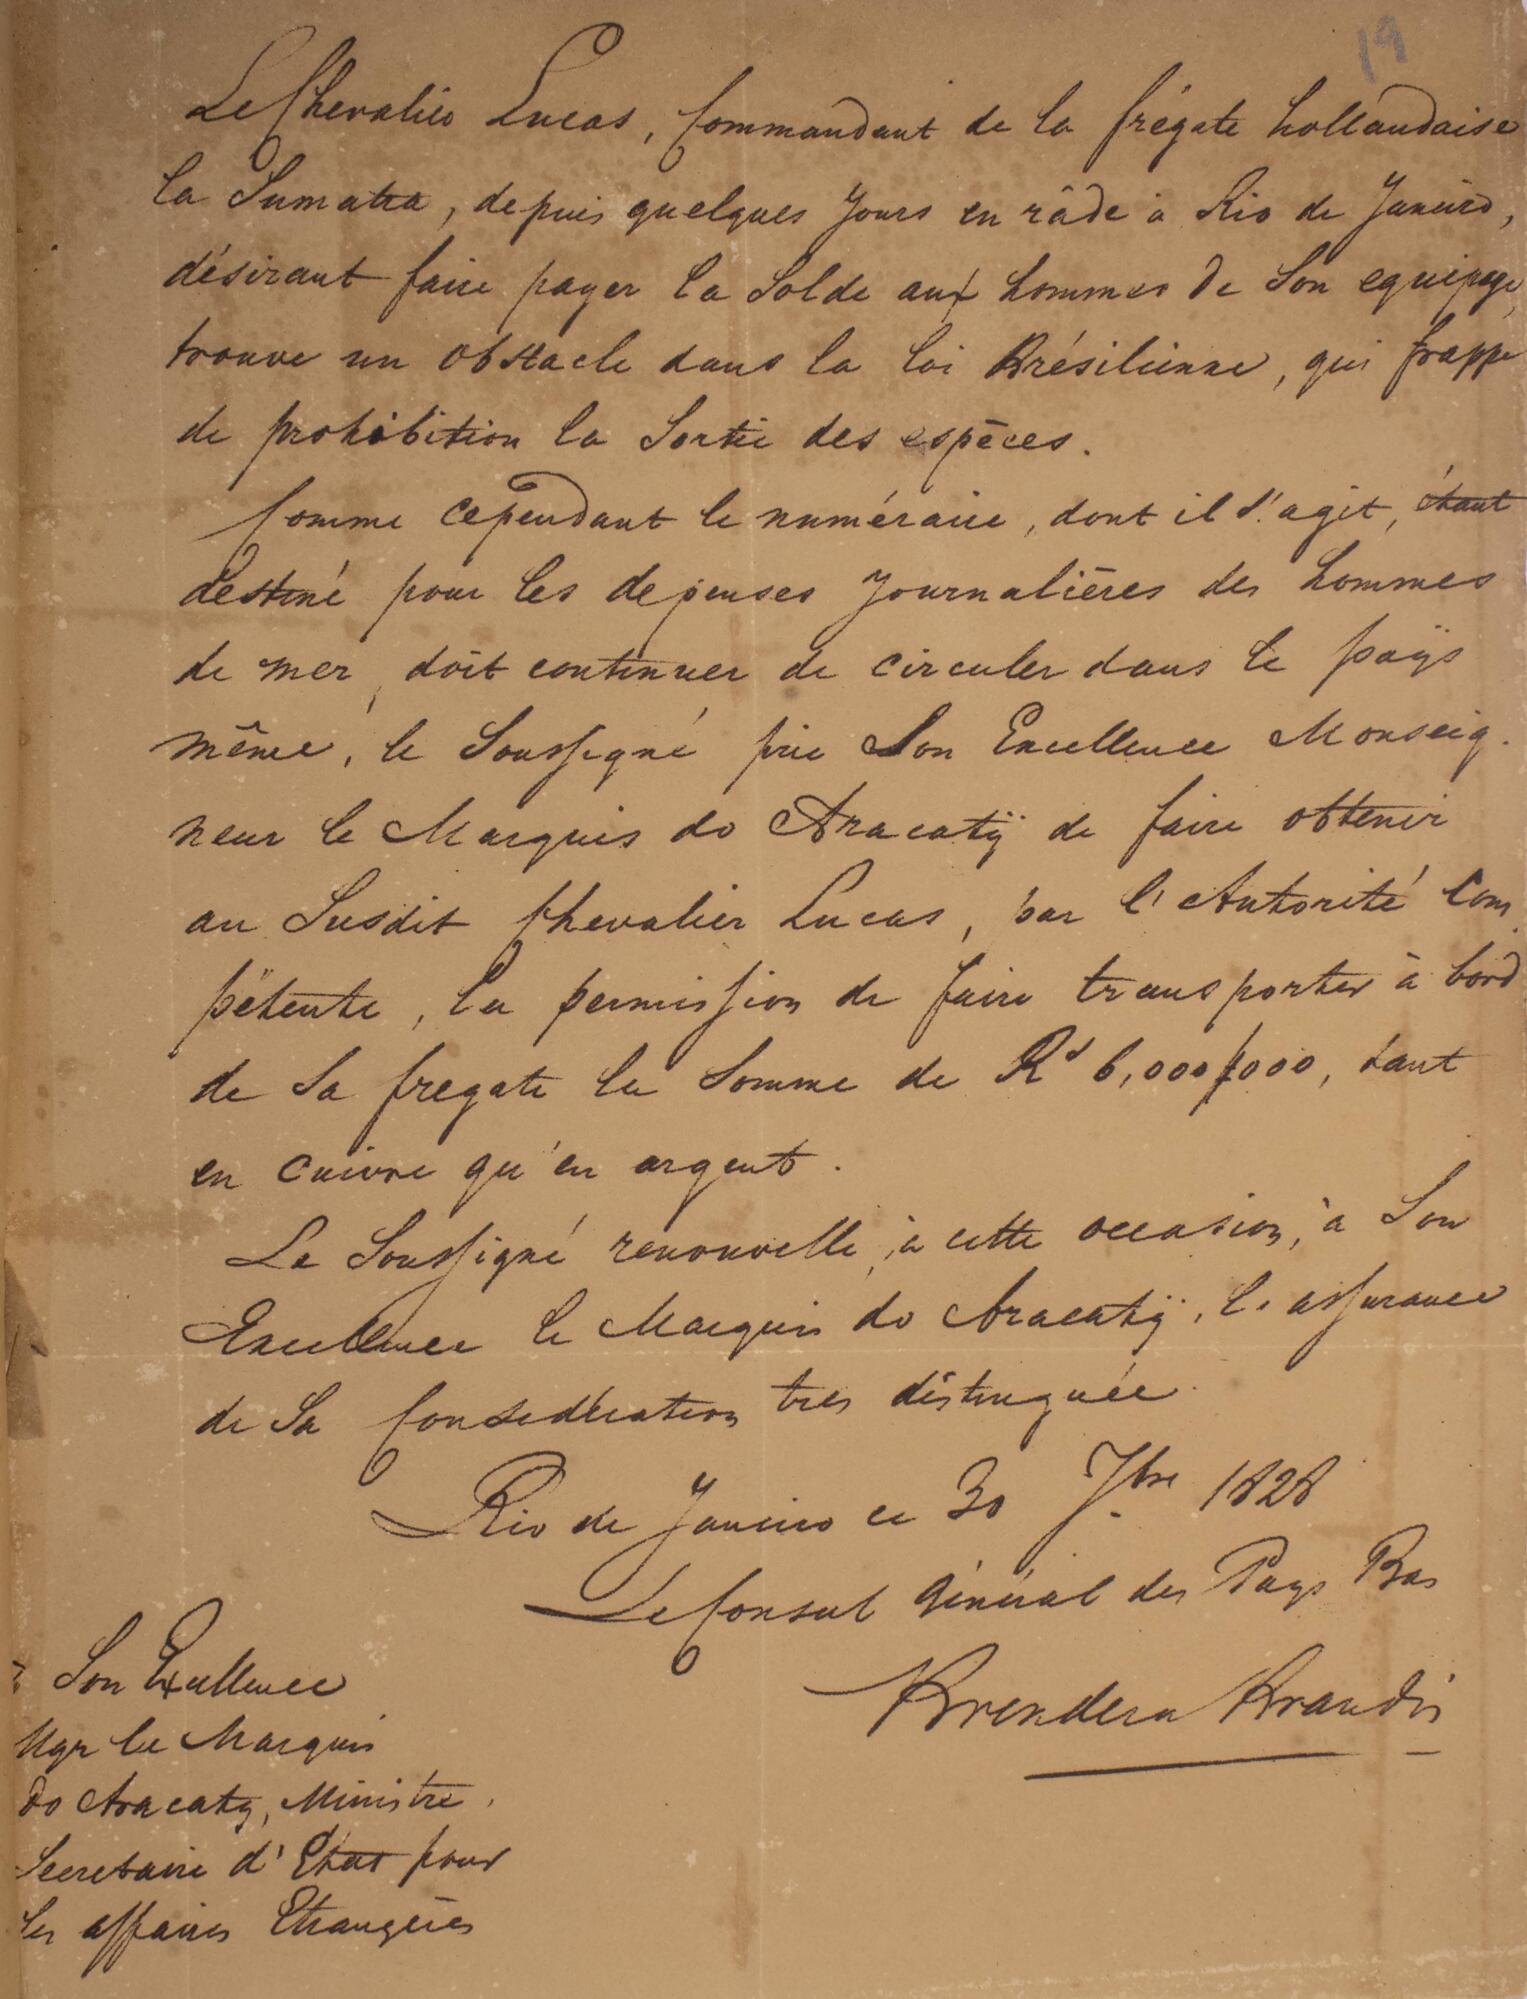 19
Le Chevalier Lucas, Commandant de la frégate hollandaise
la Sumatra, depuis quelques jours en râde à Rio de Janeiro,
désirant faire payer la Solde aux hommes de Son equipage,
trouve un obstacle dans la loi Brésilienne, qui frappe
de prohibition la Sortie des espèces.
Comme cependant le numéraire, dont il s'agit, étant
destiné pour les depenses journalières des hommes
de mer, doit continuer de circuler dans le pays
même, le Soussigné prie Son Excellence Monseig-
neur le Marquis do Aracatÿ de faire obtenir
au Susdit Chevalier Lucas, par l'Autorité Com-
pétente, la permission de faire transporter à bord
de Sa fregate la Somme de Rs 6,000$000, tant
en cuivre qu'en argent.
Le Soussigné renouvelle, à cette occasion, à Son
Excellence le Marquis do Aracatÿ, l'assurance
de Sa Considération tres distinguée.
Rio de Janeiro ce 30 7bre 1828
Le Consul Général des Pays Bas
Brendera Brandis
à Son Excellence
Mgr le Marquis
do Aracaty, Ministre,
Secretaire d'État pour
les affaires Etrangères